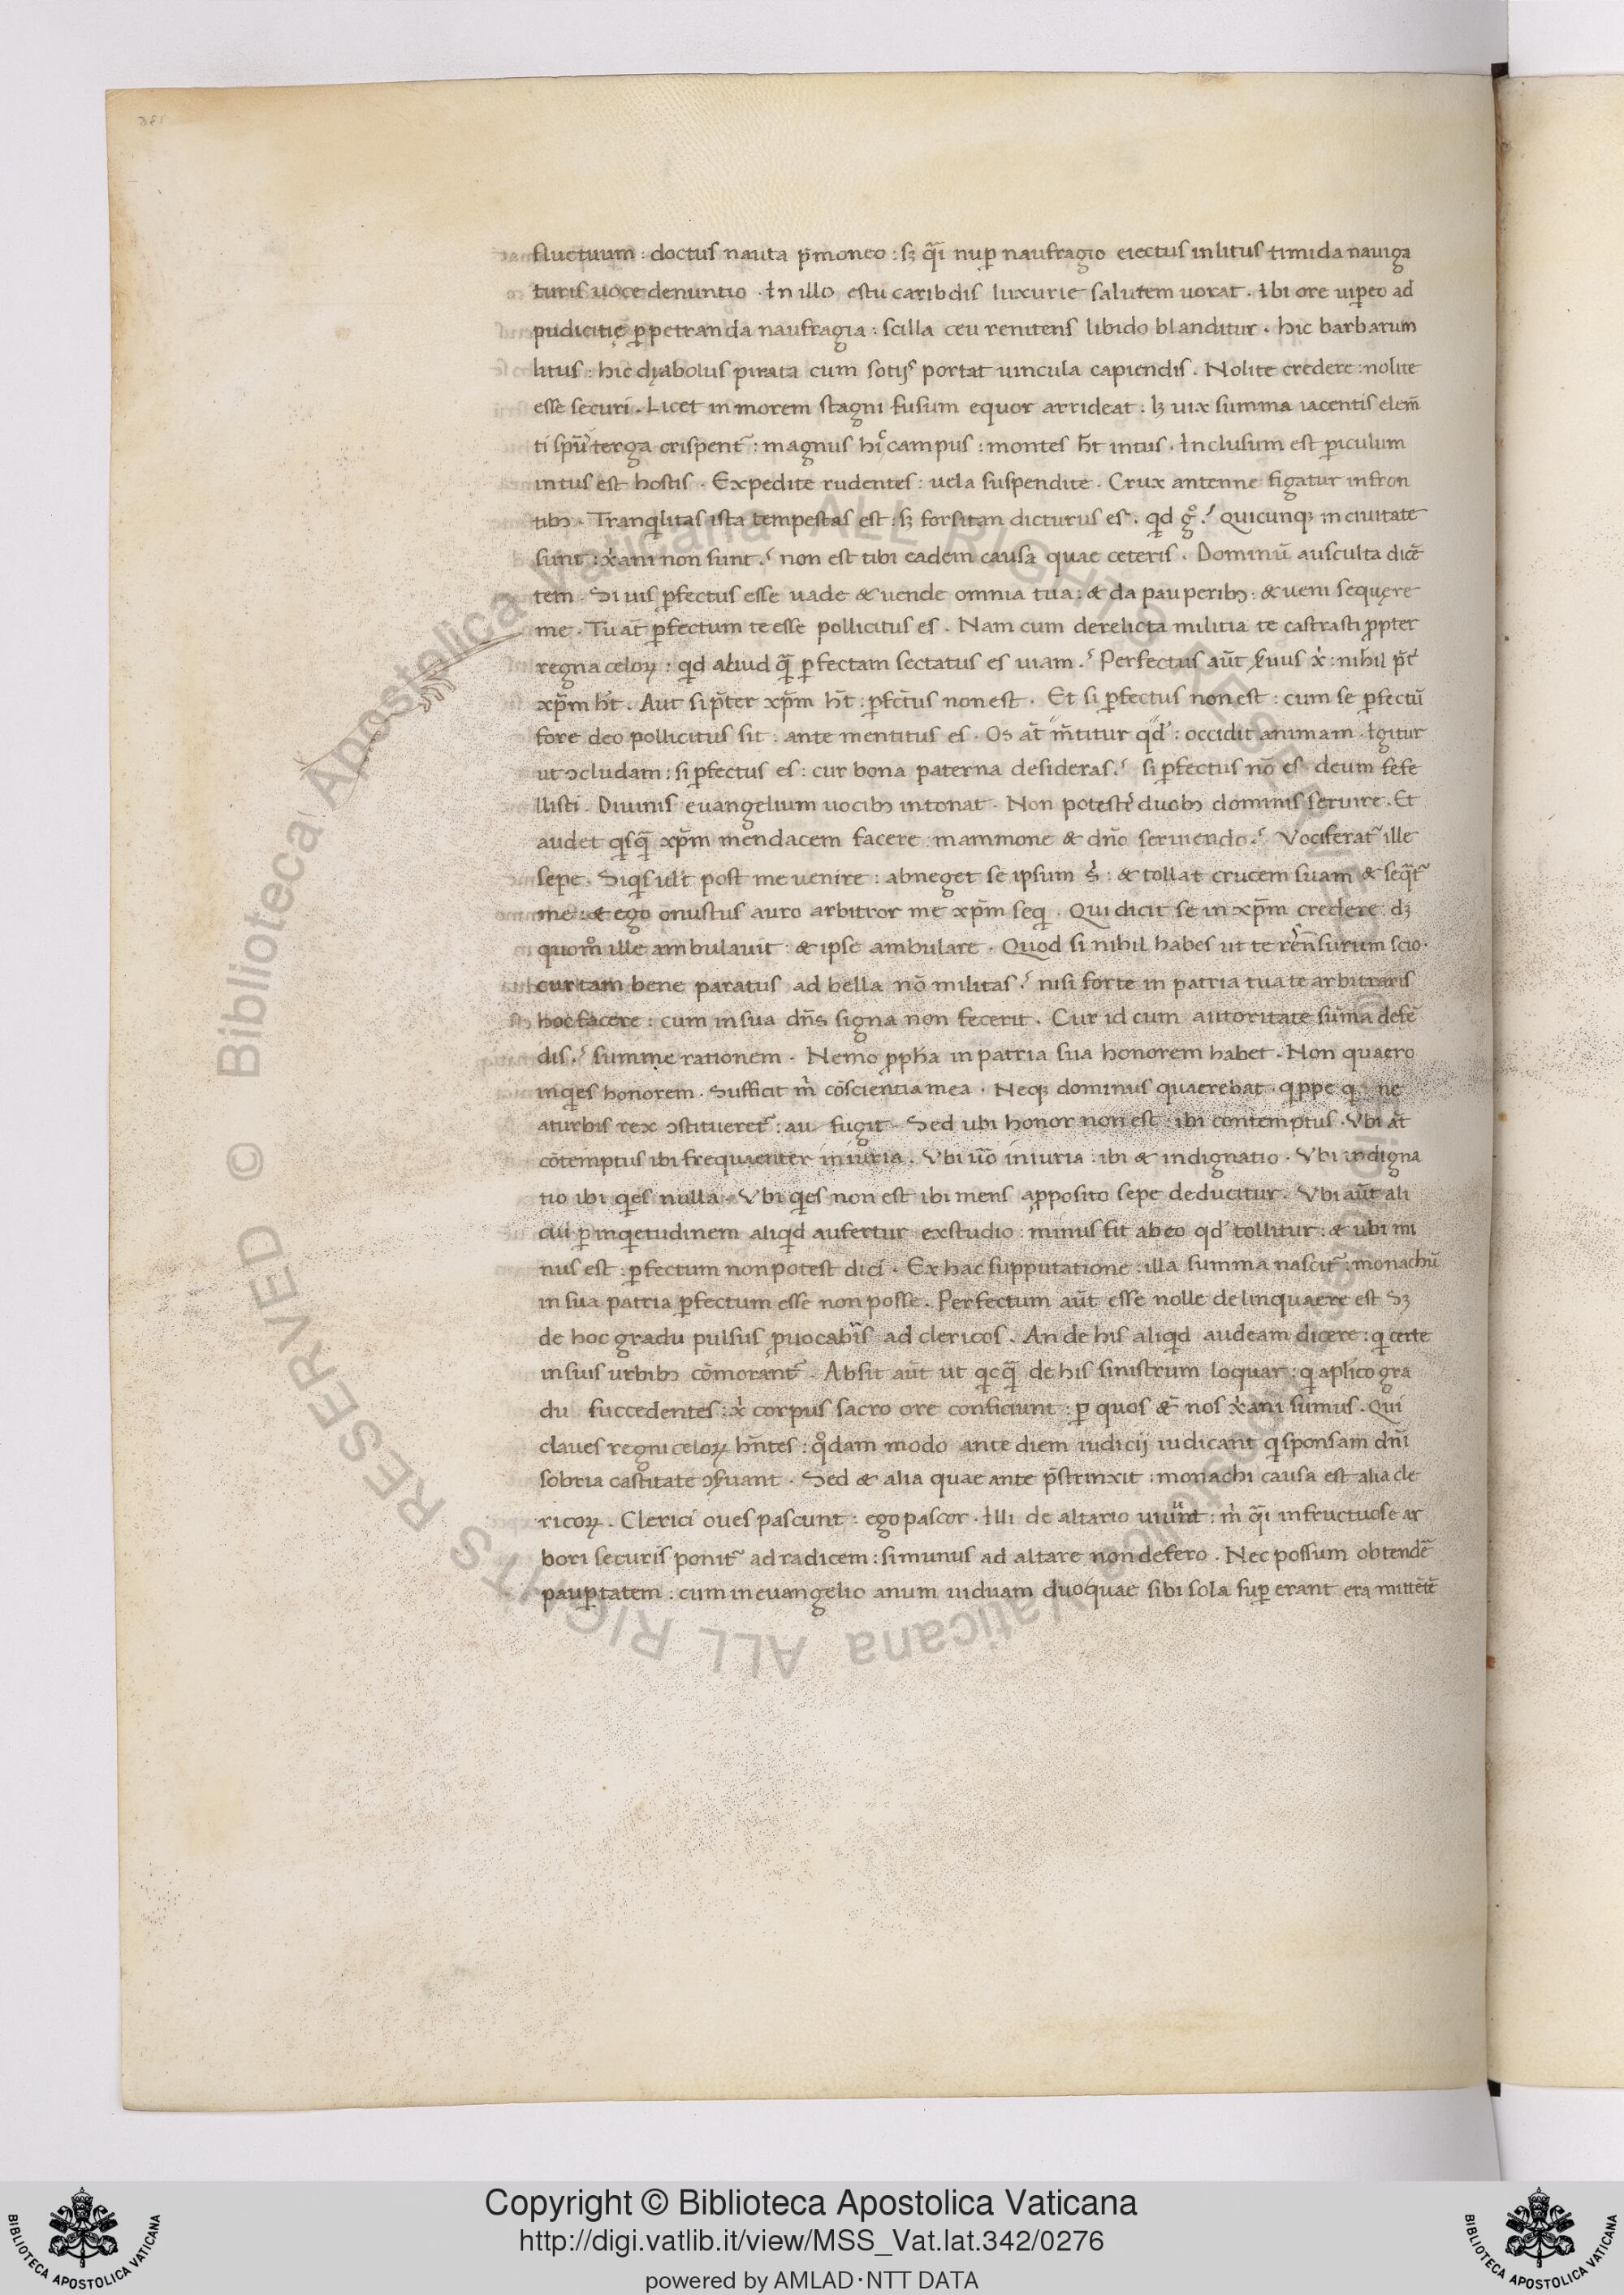 fluctuum : doctus nauta p̄moneo : sꝫ q̄i nuꝑ naufragio eiectus in litus timida nauiga
turis uoce denuntio . In illo estu caribdis luxurie salutem uorat . Ibi ore uiꝑeo ad
pudicitię ꝑpetranda naufragia : scilla ceu renitens libido blanditur . hic barbarum
litus : hic dyabolus pirata cum sotijs portat uincula capiendis . Nolite credere : nolite
esse securi . Licet in morem stagni fusum equor arrideat : lꝫ uix summa iacentis elem̄
ti spū terga crispent̄ : magnus hic campus : montes h̄t intus . Inclusum est ꝑiculum
intus est hostis . Expedite rudentes : uela suspendite . Crux antenne figatur in fron
tibꝫ . Tranqͥlitas ista tempestas est : sꝫ forsitan dicturus es . qͥd gͦ ? Quicunqꝫ in ciuitate
sunt : xͥani non sunt ? non est tibi eadem causa quae ceteris . Dominū ausculta dicē
tem . Si uis ꝑfectus esse uade & uende omnia tua : & da pauperibꝫ : & ueni sequere
me . Tu at̄ ꝑfectum te esse pollicitus es . Nam cum derelicta militia te castrasti ꝓpter
regna celoꝝ : qͥd aliud qͣ̄ ꝑfectam sectatus es uiam ? Perfectus aūt ẜuus xͥ : nihil p̄t̓
xp̄m h̄t . Aut si p̄ter xp̄m h̄t : ꝑfectus non est . Et si ꝑfectus non est : cum se ꝑfectū
fore deo pollicitus sit : ante mentitus es . Os at̄ m̄titur qd̓ : occidit animam . Igitur
ut ↄcludam : si ꝑfectus es : cur bona paterna desideras ? si ꝑfectus nō es deum fefe
llisti . Diuinis euangelium uocibꝫ intonat . Non potestͥ duobꝫ dominis seruire . Et
audet qͥsqͣ̄ xp̄m mendacem facere : mammone & dn̄o seruiendo ? Vociferat̄ ille
sepe . Siqͥs ult̓ post me uenire : abneget se ipsum sͥ : & tollat crucem suam & seqͣt̄
me : & ego onustus auro arbitror me xp̄m seqͥ . Qui dicit se in xp̄m credere : dꝫ
quom̊ ille ambulauit : & ipse ambulare . Quod si nihil habes ut te rēn̄surum scio .
cur tam bene paratus ad bella nō militas ? nisi forte in patria tua te arbitraris
hoc facere : cum in sua dn̄s signa non fecerit . Cur id cum autoritate sum̄a defē
dis ? summe rationem . Nemo ꝓph̄a in patria sua honorem habet . Non quaero
inqͥes honorem . Sufficit mͥ cōscientia mea . Neqꝫ dominus quaerebat . qͥppe q ne
a turbis rex ↄstitueret̄ : au fugit . Sed ubi honor non est : ibi contemptus . Vbi at̄
cōtemptus ibi frequaenter iniuria . Vbi ūo iniuria : ibi & indignatio . Vbi indigna
tio ibi qͥes nulla . Vbi qͥes non est ibi mens aꝓposito sepe deducitur . Vbi aūt ali
cui ꝑ inqͥetudinem aliqͥd aufertur ex studio : minus fit ab eo qd̓ tollitur : & ubi mi
nus est : ꝑfectum non potest dici . Ex hac supputatione : illa summa nascit̄ : monachū
in sua patria ꝑfectum esse non posse . Perfectum aūt esse nolle delinquaere est Sꝫ
de hoc gradu pulsus ꝓuocabis ad clericos . An de his aliqͥd audeam dicere : qͥ certe
in suis urbibꝫ cōmorant̄ . Absit aūt ut qͥcqͣ̄ de his sinistrum loquar : qͥ aplico gra
du succedentes : xͥ corpus sacro ore conficiunt : ꝑ quos & nos xͥani sumus . Qui
claues regni celoꝝ hn̄tes : qͦdam modo ante diem iudicij iudicant qͥ sponsam dn̄i
sobria castitate ↄẜuant . Sed & alia quae ante p̄strinxit : monachi causa est alia cle
ricoꝝ . Clerici oues pascunt : ego pascor . Illi de altario uiuūt : mͥ qͣ̄i infructuose ar
bori securis ponit̄ ad radicem : si munus ad altare non defero . Nec possum obtendē
pauꝑtatem : cum in euangelio anum uiduam duo quae sibi sola suꝑ erant era mittētē
Copyright © Biblioteca Apostolica Vaticana
http://digi.vatlib.it/view/MSS_Vat.lat.342/0276
powered by AMLAD·NTT DATA